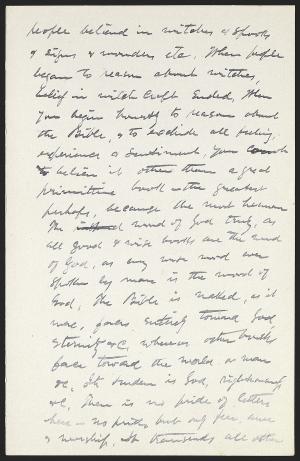 people believed in witches & Spooks
& signs & wonders etc. When people
began to reason about witches,
belief in witch craft ended, When
you begin honestly to reason about
the Bible, & to exclude all feeling,
experience & Sentiment, you
to believe it other than a great
primitive book – the greatest
perhaps, because the most human
The word of God truly, as
all good & wise books are the word
of God, as any wise word ever
spoken by man is the word of
God, The Bible is naked, as it
were, faces entirely toward God,
Eternity &c, whereas other books
face toward the world or man
&c. Its burden is God, righteousness
&c, There is no pride of letters
here – no pride but only fear, awe
& worship, It transcends all other